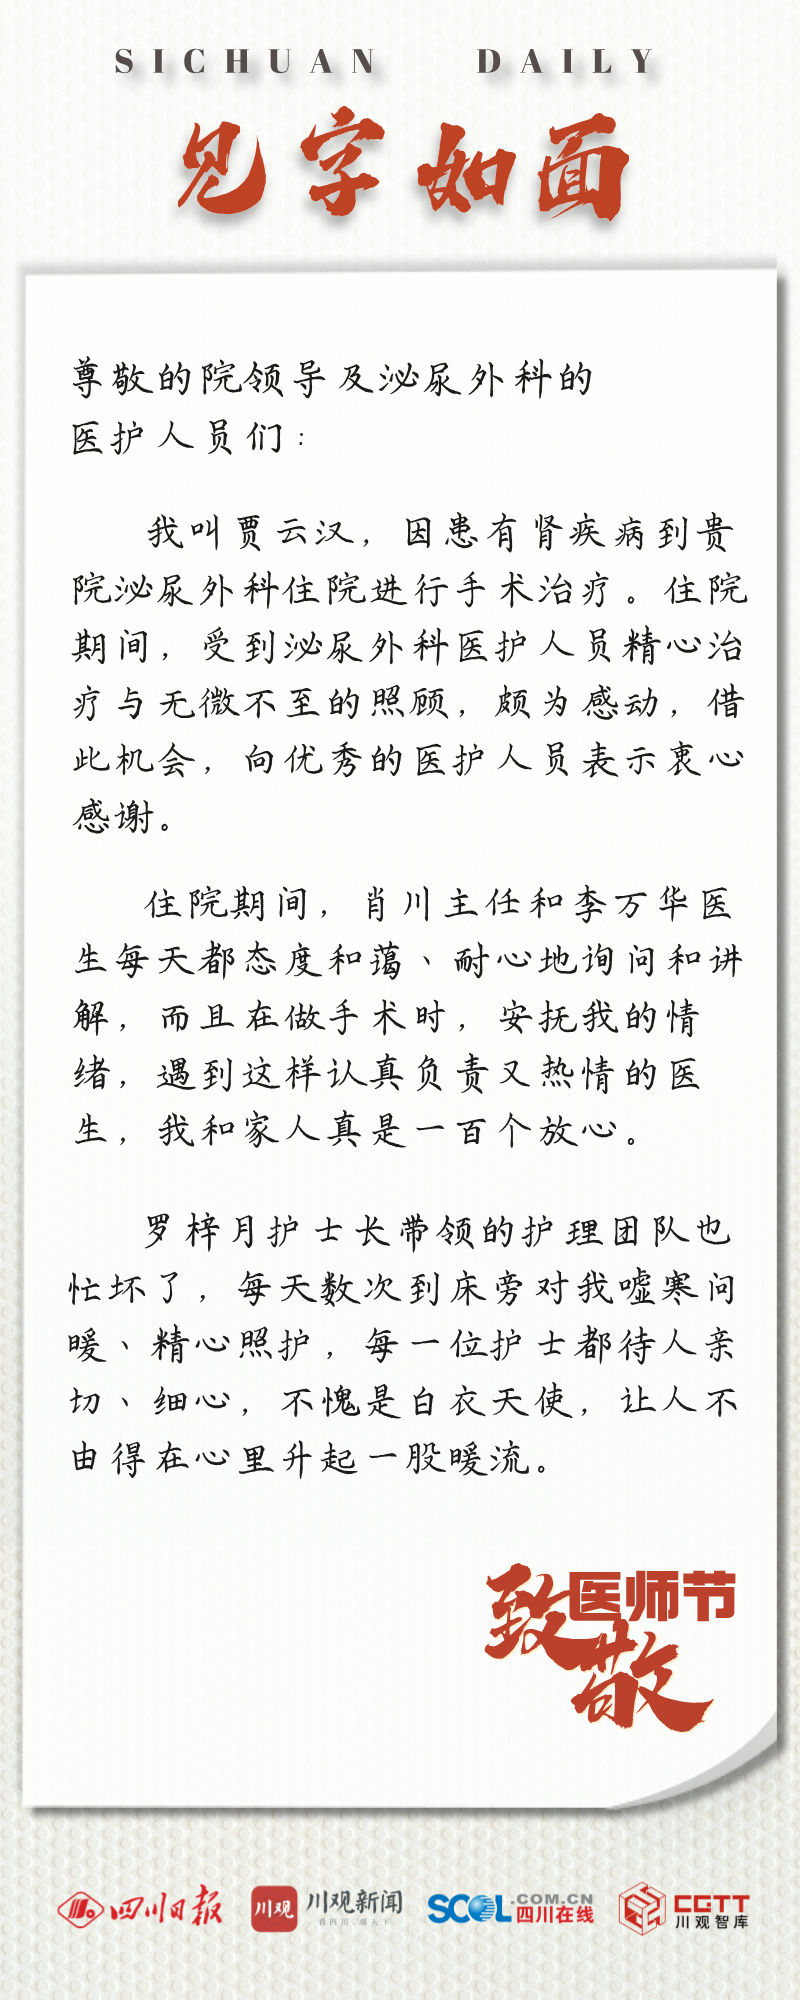 SICHUAN DAILY
见字如面
尊敬的院领导及泌尿外科的
医护人员们：
我叫贾云汉，因患有肾疾病到贵
院泌尿外科住院进行手术治疗。住院
期间，受到泌尿外科医护人员精心治
疗与无微不至的照顾，颇为感动，借
此机会，向优秀的医护人员表示衷心
感谢。
住院期间，肖川主任和李万华医
生每天都态度和蔼、耐心地询问和讲
解，而且在做手术时，安抚我的情
绪，遇到这样认真负责又热情的医
生，我和家人真是一百个放心。
罗梓月护士长带领的护理团队也
忙坏了，每天数次到床旁对我嘘寒问
暖、精心照护，每一位护士都待人亲
切、细心，不愧是白衣天使，让人不
由得在心里升起一股暖流。
致敬
医师节
四川日报
川观
川观新闻
看四川，观天下
SCOL.COM.CN
四川在线
CGTT
川观智库